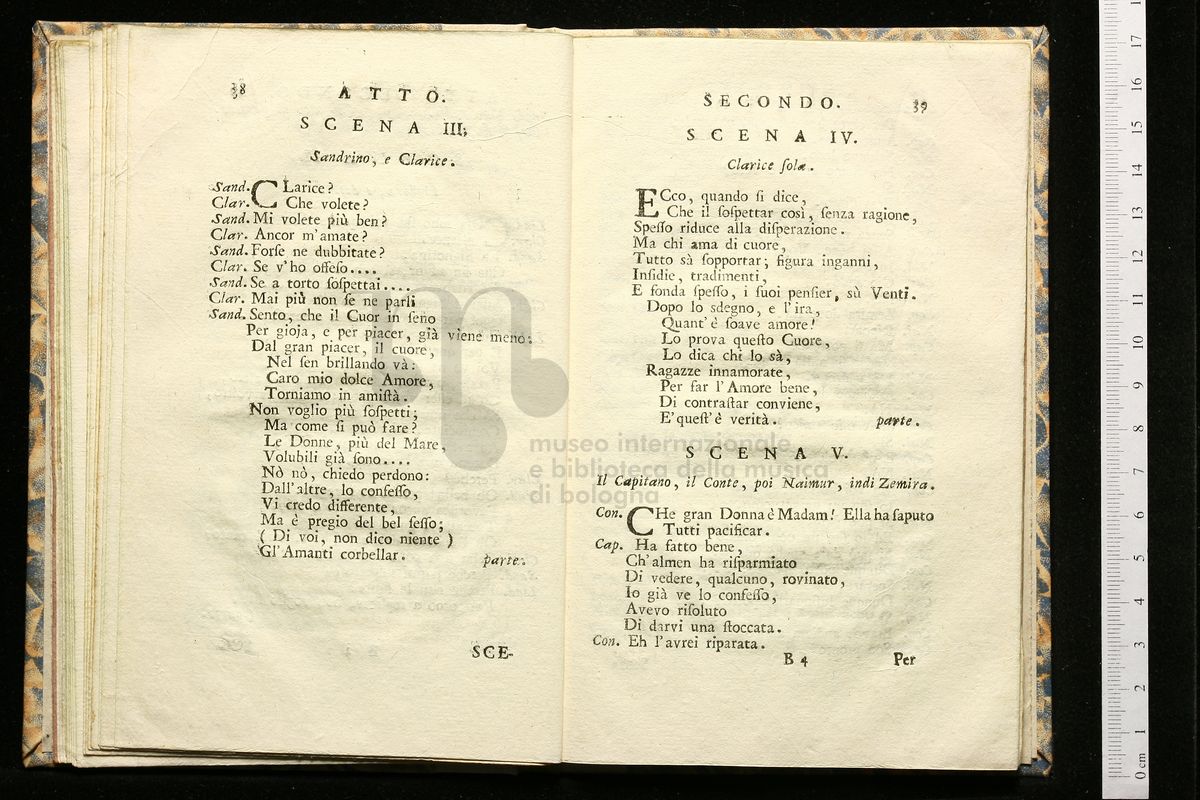 38
ATTO.
SCENA III;
Sandrino, e Clarice.
Sand. CLarice?
Clar. Che volete?
Sand. Mi volete più ben?
Clar. Ancor m'amate?
Sand. Forſe ne dubbitate?
Clar. Se v'ho offeſo....
Sand. Se a torto ſoſpettai....
Clar. Mai più non ſe ne parli
Sand. Sento, che il Cuor in ſeno
Per gioja, e per piacer, già viene meno:
Dal gran piacer, il cuore,
Nel ſen brillando và:
Caro mio dolce Amore,
Torniamo in amiſtà.
Non voglio più ſoſpetti;
Ma come ſi può fare?
Le Donne, più del Mare,
Volubili già ſono....
Nò nò, chiedo perdono:
Dall'altre, lo confeſſo,
Vi credo differente,
Ma è pregio del bel ſeſſo;
( Di voi, non dico niente )
Gl'Amanti corbellar.
parte.
SCE-
SECONDO.
39
SCENA IV.
Clarice ſola.
ECco, quando ſi dice,
Che il ſoſpettar così, ſenza ragione,
Speſſo riduce alla diſperazione.
Ma chi ama di cuore,
Tutto sà ſopportar; figura inganni,
Inſidie, tradimenti,
E fonda ſpeſſo, i ſuoi penſier, sù Venti.
Dopo lo sdegno, e l'ira,
Quant'è ſoave amore!
Lo prova queſto Cuore,
Lo dica chi lo sà,
Ragazze innamorate,
Per far l'Amore bene,
Di contraſtar conviene,
E'queſt'è verità. parte.
SCENA V.
Il Capitano, il Conte, poi Naimur, indi Zemira.
Con. CHe gran Donna è Madam! Ella ha ſaputo
Tutti pacificar.
Cap. Ha fatto bene,
Ch'almen ha riſparmiato
Di vedere, qualcuno, rovinato,
Io già ve lo confeſſo,
Avevo riſoluto
Di darvi una ſtoccata.
Con. Eh l'avrei riparata.
B 4
Per
museo internazionale
e biblioteca della musica
di bologna
0 cm 1 2 3 4 5 6 7 8 9 10 11 12 13 14 15 16 17